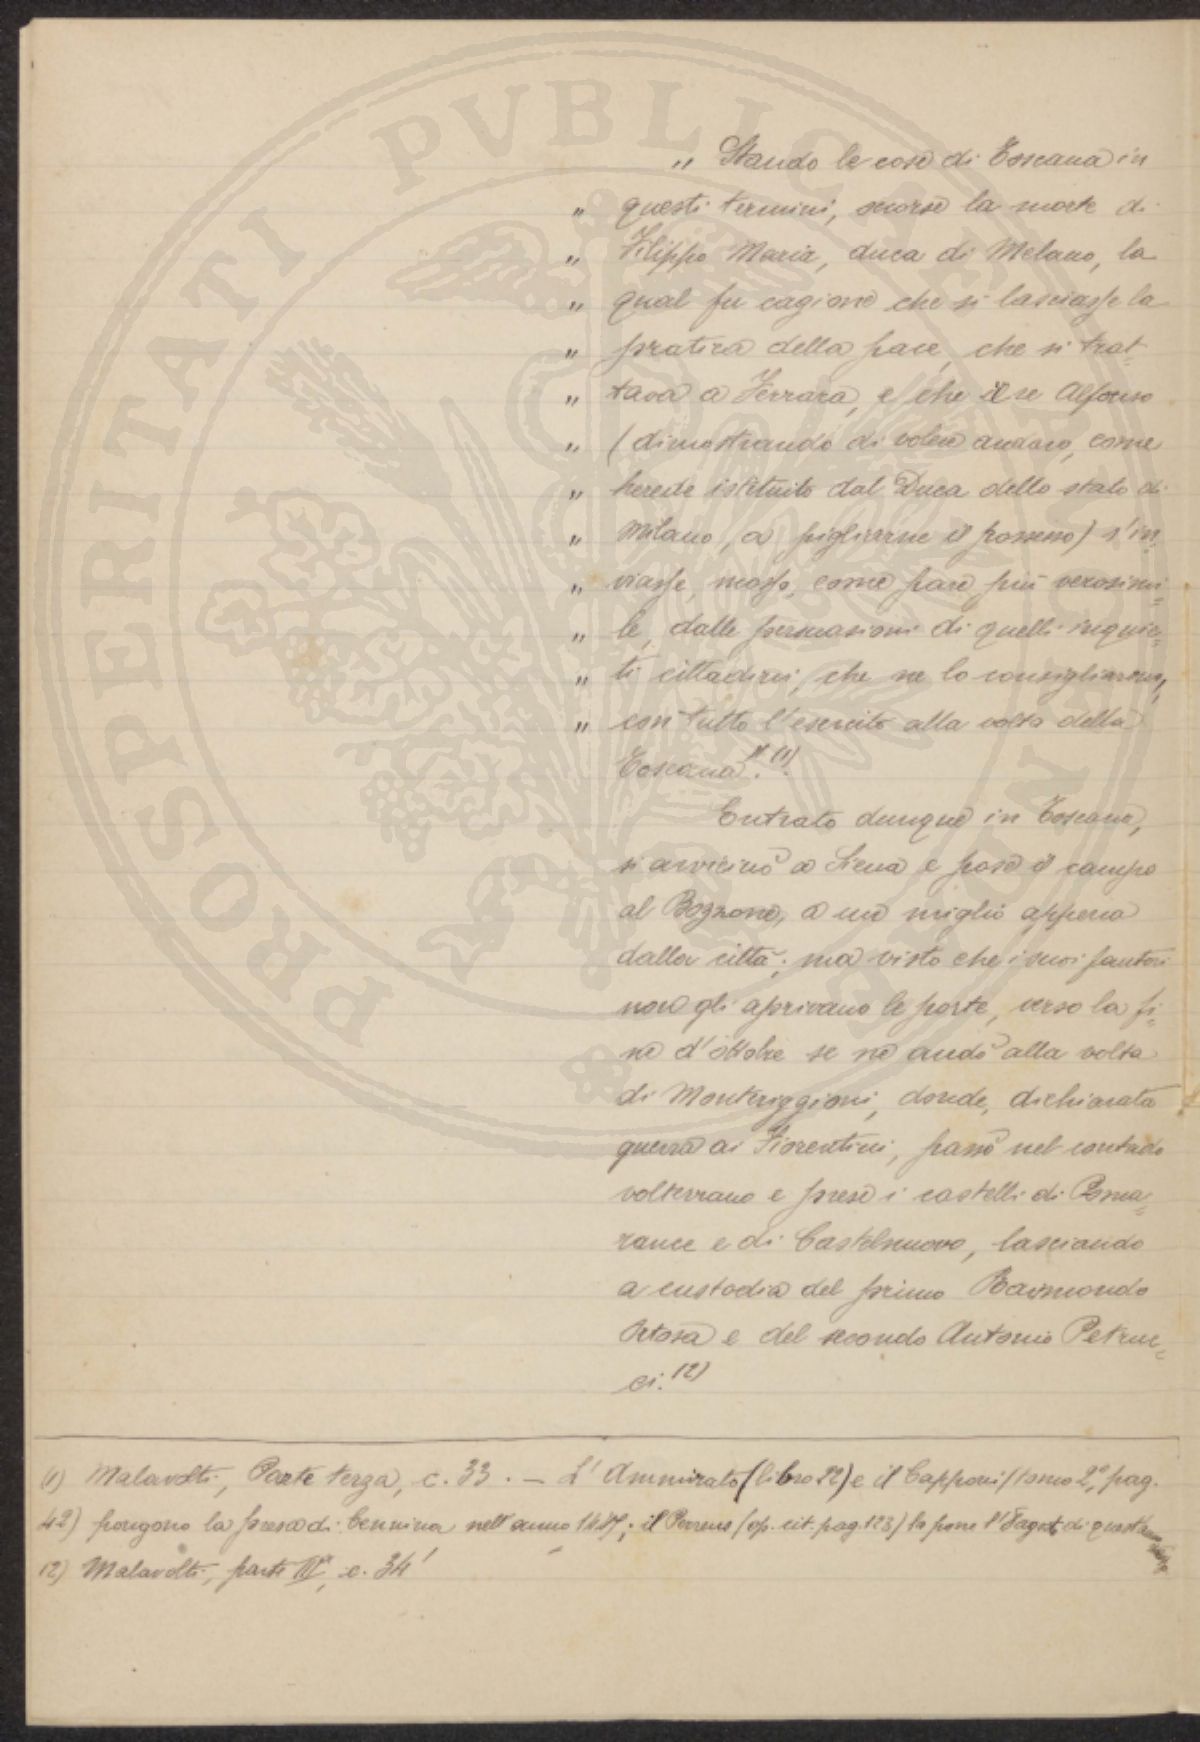 „ Stando le cose di Toscana in
„ questi termini, occorse la morte di
„ Filippo Maria, duca di Melano, la
„ qual fu cagione che si lasciasse la
„ pratica della pace, che si trat-
„ tava a Ferrara, e che il re Alfonso
„ (dimostrando di volere andare, come
„ herede istituito dal Duca dello stato di
„ Milano, a pigliarne il possesso) s'in=
„ viasse, mosso, come pare più verosimi=
„ le, dalle persuasioni di quelli inquie=
„ ti cittadini, che ne lo consigliarono,
„ con tutto l'esercito alla volta della
Toscana". (1)
Entrato dunque in Toscana,
si avvicinò a Siena e pose il campo
al Bozzone, a un miglio appena
dalla città; ma visto che i suoi fautori
non gli aprivano le porte, verso la fi=
ne d'ottobre se ne andò alla volta
di Monteriggioni, donde, dichiarata
guerra ai Fiorentini, passò nel contado
volterrano e prese i castelli di Poma=
rance e di Castelnuovo, lasciando
a custodia del primo Raimondo
Ortosa e del secondo Antonio Petruc=
ci. (2)
(1) Malavolti, Parte terza, c. 33. — L'Ammirato (libro 22) e il Capponi (tomo 2°, pag.
42) pongono la presa di Cennina nell'anno 1447; il Perrens (op. cit. pag. 123) la pone l'8 agosto di
(2) Malavolti, parte IIIª, c. 34'
PROSPERITATI PVBLICAE